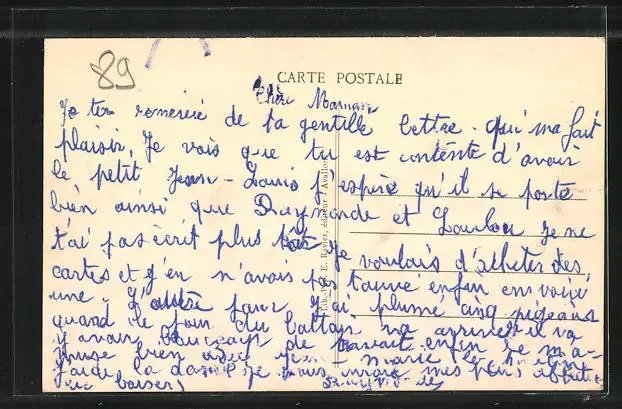 89
CARTE POSTALE
Chère Maman
Je te remercie de ta gentille lettre. qui ma fait
plaisir, Je vois que tu est contente d'avoir
le petit Jean-Louis j'espère qu'il se porte
bien ainsi que Raymonde et Loulou Je ne
t'ai pas écrit plus tôt Je voulais d'acheter des
cartes et j'en n'avais pas trouvé enfin en voici
une. L'autre jour J'ai plumé cinq pigeons
quand le jour du battage va arriver il va
y avoir beaucoup de travail enfin Je m'a-
muse bien avec
J'aide la dame Je vous envoie mes plus affectu
baisers
Lib. E. Rover, éditeur, Avallon